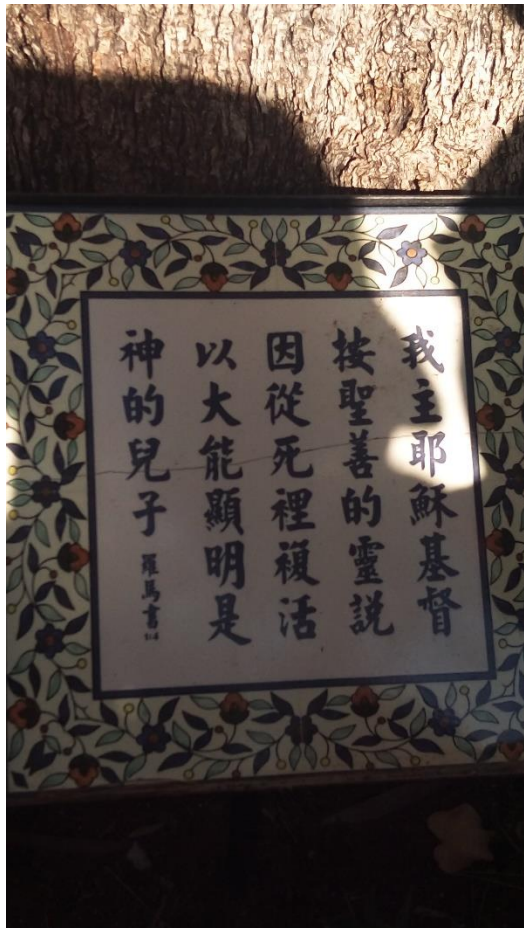 我主耶穌基督
按聖善的靈説
因從死裡複活
以大能顯明是
神的兒子 羅馬書1:4